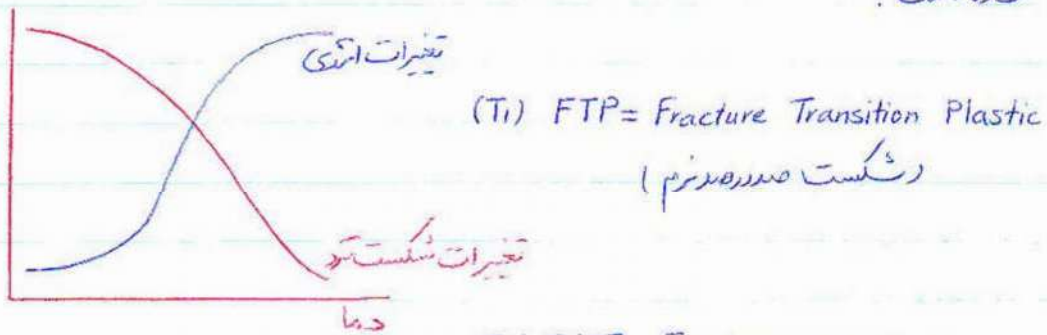 تغییرات انرژی
(T1) FTP = Fracture Transition Plastic
(شکست صددرصد نرم)
تغییرات شکست ترد
دما